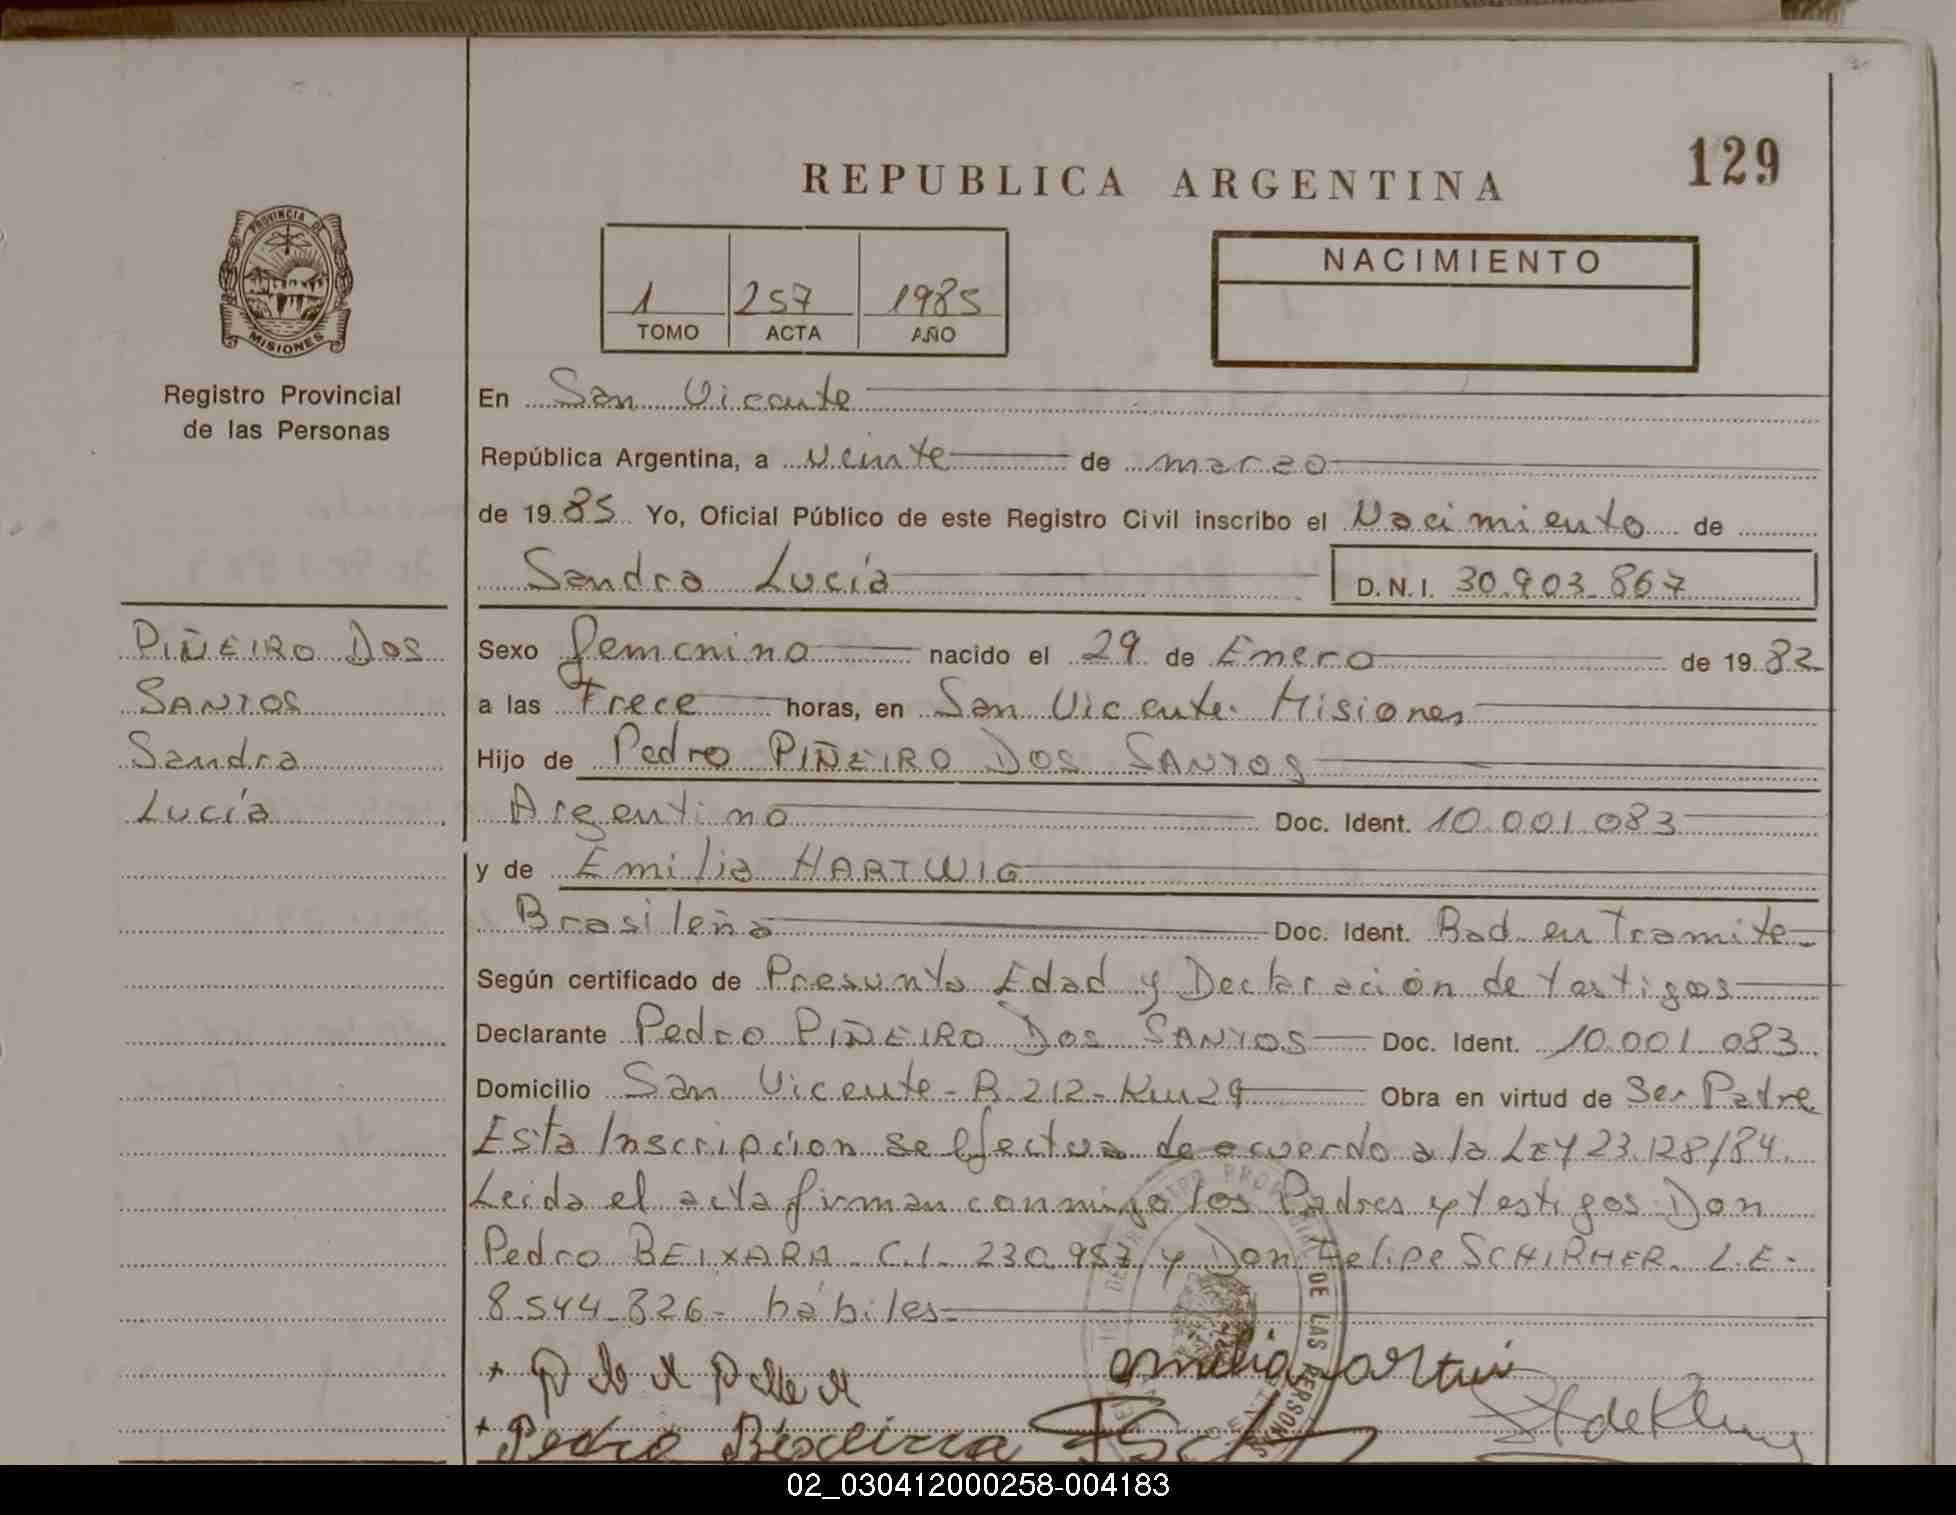 129
REPUBLICA ARGENTINA
PROVINCIA DE
MISIONES
Registro Provincial
de las Personas
1 257 1985
TOMO ACTA AÑO
NACIMIENTO
En San Vicente
República Argentina, a veinte de marzo
de 1985 Yo, Oficial Público de este Registro Civil inscribo el Nacimiento de
Sandra Lucía D.N.I. 30.903.867
PIÑEIRO DOS
SANTOS
Sandra
Lucía
Sexo femenino nacido el 29 de Enero de 1982
a las Trece horas, en San Vicente. Misiones
Hijo de Pedro PIÑEIRO DOS SANTOS
Argentino Doc. Ident. 10.001.083
y de Emilia HARTWIG
Brasileña Doc. Ident. Rad. en Tramite
Según certificado de Presunta Edad y Declaración de testigos
Declarante Pedro PIÑEIRO DOS SANTOS Doc. Ident. 10.001.083
Domicilio San Vicente - R. 212 - Km 29 Obra en virtud de Ser Padre
Esta Inscripción se efectua de acuerdo a la LEY 23.128/84.
Leida el acta firman conmigo los Padres y testigos Don
Pedro BEIXARA C.I. 230.957 y Don Felipe SCHIRMER. L.E.
8.544.826 - hábiles
DE LAS PERSONAS
Pedro
02_030412000258-004183